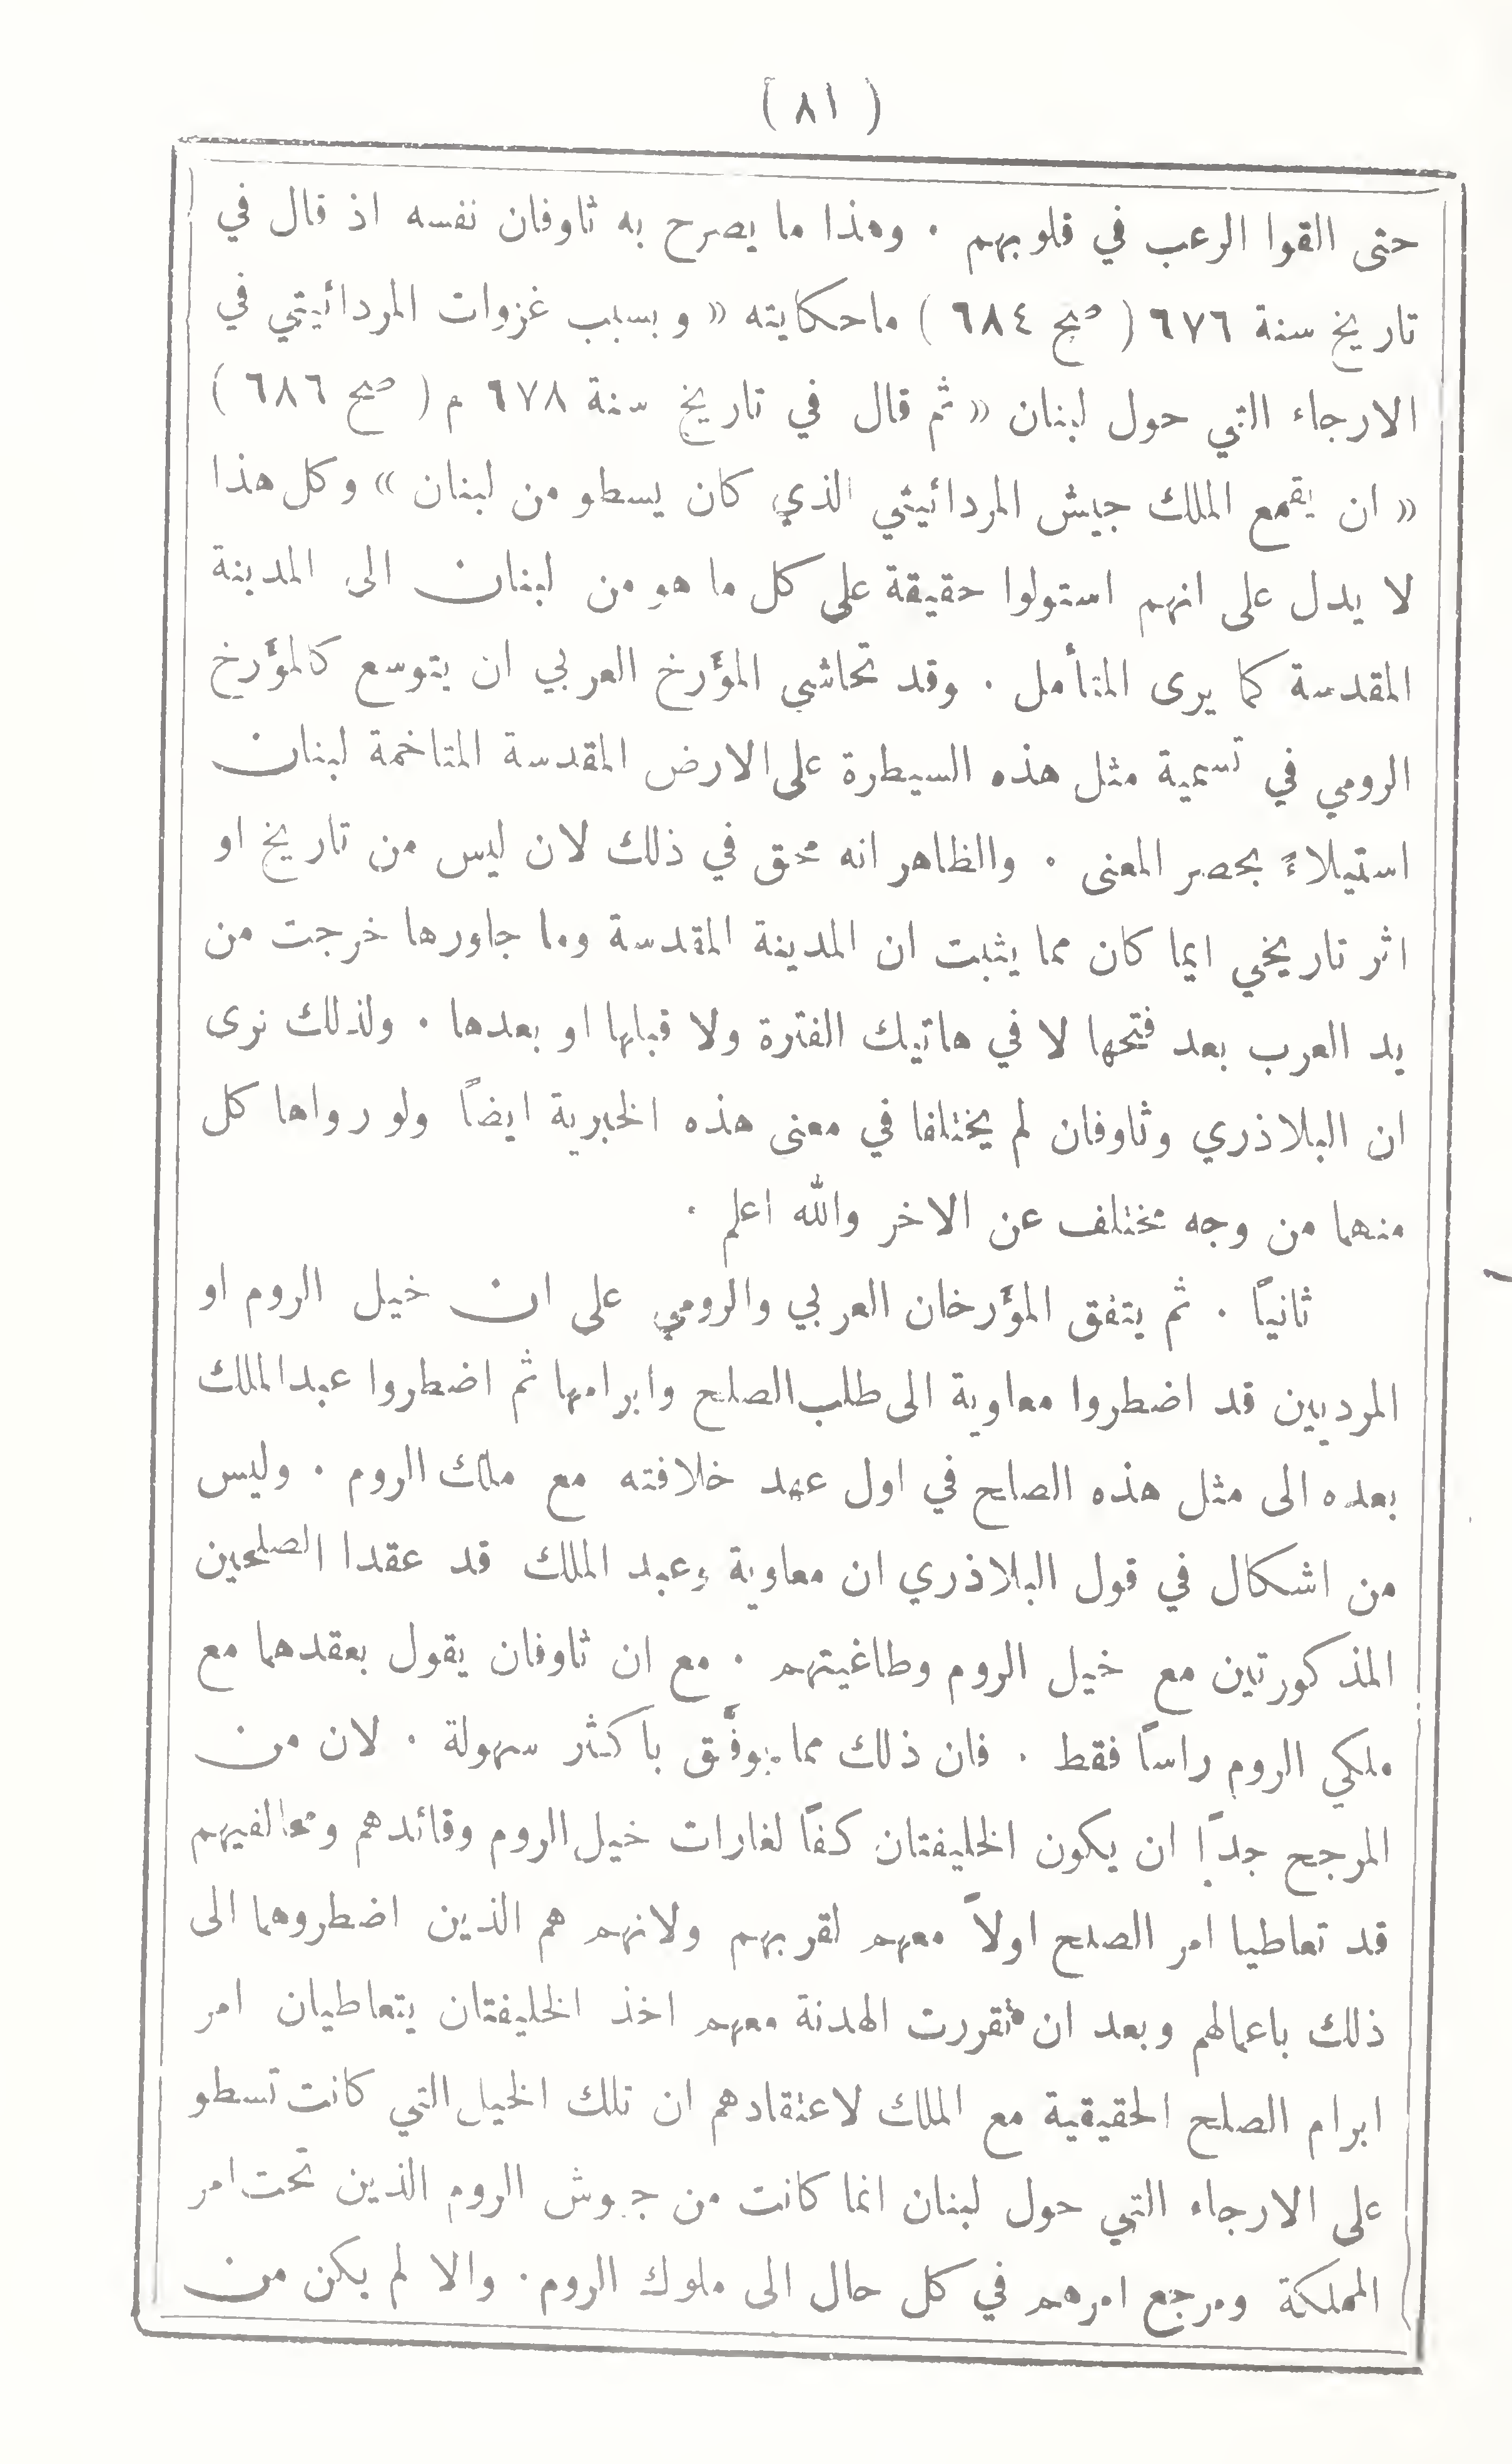 ( ٨١ )
حتى القوا الرعب في قلوبهم . وهذا ما يصرح به ثاوفان نفسه اذ قال في
تاريخ سنة ٦٧٦ ( صح ٦٨٤ ) ماحكايته « وبسبب غزوات المردائيتي في
الارجاء التي حول لبنان « ثم قال في تاريخ سنة ٦٧٨ م ( صح ٦٨٦ )
« ان يقمع الملك جيش المردائيتي الذي كان يسطو من لبنان » وكل هذا
لا يدل على انهم استولوا حقيقة على كل ما هو من لبنان الى المدينة
المقدسة كما يرى المتأمل . وقد تحاشى المؤَرخ العربي ان يتوسع كالمؤَرخ
الرومي في تسمية مثل هذه السيطرة على الارض المقدسة المتاخمة لبنان
استيلاءً بحصر المعنى . والظاهر انه محق في ذلك لان ليس من تاريخ او
اثر تاريخي ايما كان مما يثبت ان المدينة المقدسة وما جاورها خرجت من
يد العرب بعد فتحها لا في هاتيك الفترة ولا قبلها او بعدها . ولذلك نرى
ان البلاذري وثاوفان لم يختلفا في معنى هذه الخبرية ايضاً ولو رواها كل
منهما من وجه مختلف عن الاخر والله اعلم .
ثانياً . ثم يتفق المؤَرخان العربي والرومي على ان خيل الروم او
المرديين قد اضطروا معاوية الى طلب الصلح وابرامها ثم اضطروا عبدالملك
بعده الى مثل هذه الصلح في اول عهد خلافته مع ملك الروم . وليس
من اشكال في قول البلاذري ان معاوية وعبد الملك قد عقدا الصلحين
المذكورتين مع خيل الروم وطاغيتهم . مع ان ثاوفان يقول بعقدهما مع
ملكي الروم راساً فقط . فان ذلك مما يوفَّق باكثر سهولة . لان من
المرجح جدًا ان يكون الخليفتان كفاً لغارات خيل الروم وقائدهم ومحالفيهم
قد تعاطيا امر الصلح اولاً معهم لقربهم ولانهم هم الذين اضطروهما الى
ذلك باعمالهم وبعد ان تقررت الهدنة معهم اخذ الخليفتان يتعاطيان امر
ابرام الصلح الحقيقية مع الملك لاعتقادهم ان تلك الخيل التي كانت تسطو
على الارجاء التي حول لبنان انما كانت من جيوش الروم الذين تحت امر
المملكة ومرجع امرهم في كل حال الى ملوك الروم . والا لم يكن من